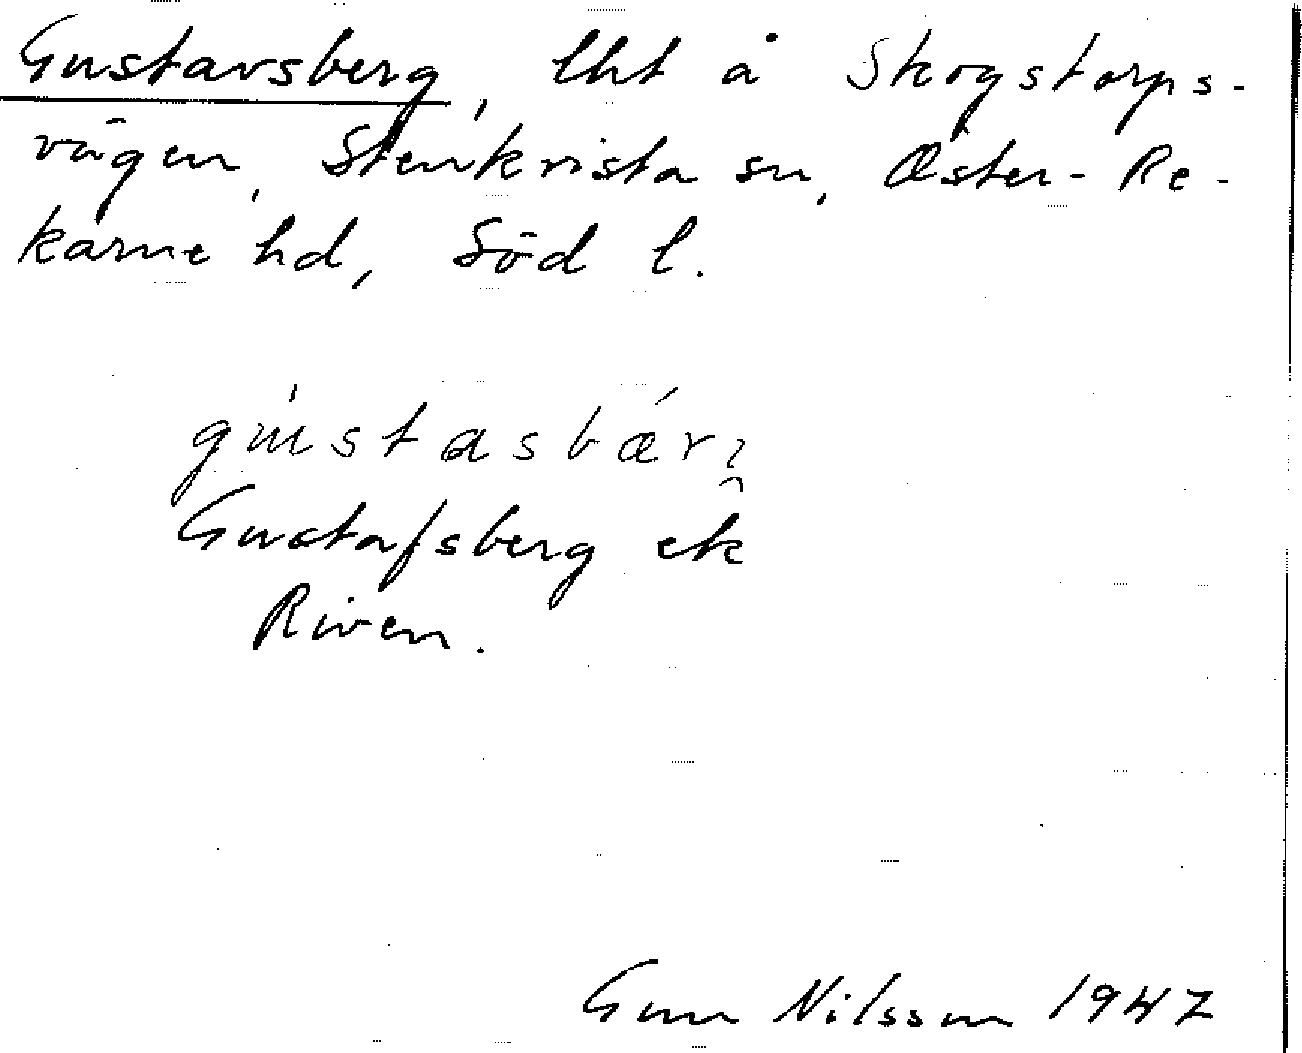 Gustavsberg, lht å Skogstorps-
vägen, Stenkvista sn, Öster-Re-
karne hd, Söd l.
Gustafsberg ek
Riven.
Gun Nilsson 1947